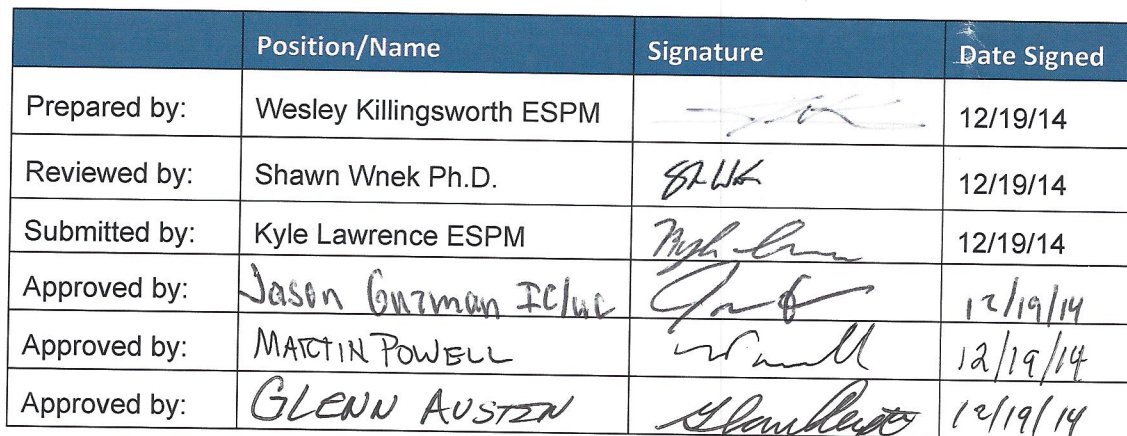 Position/Name Signature Date Signed
Prepared by: Wesley Killingsworth ESPM 12/19/14
Reviewed by: Shawn Wnek Ph.D. 12/19/14
Submitted by: Kyle Lawrence ESPM 12/19/14
Approved by: Jason Guzman IC/UC 12/19/14
Approved by: MARTIN POWELL 12/19/14
Approved by: GLENN AUSTIN 12/19/14